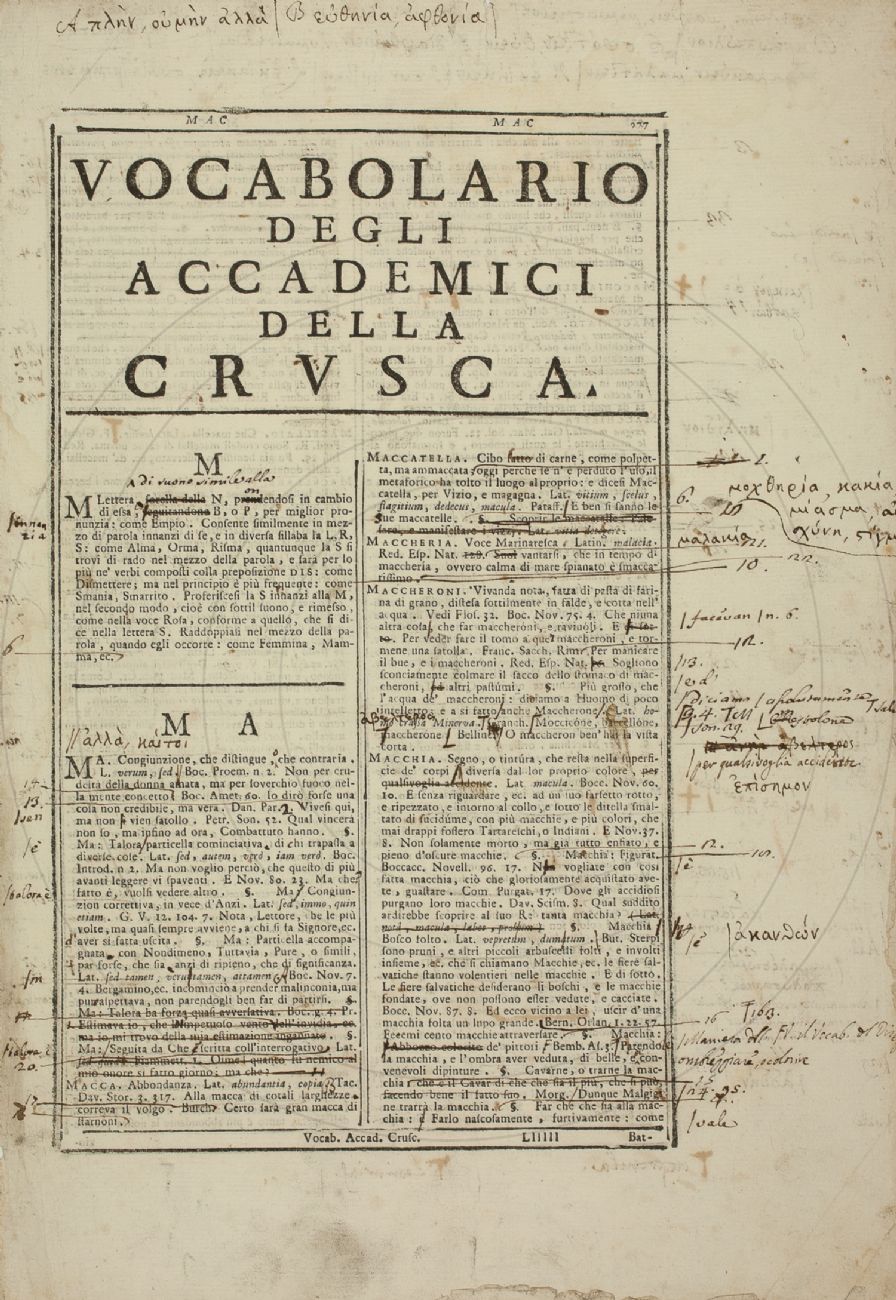 A πλὴν, οὐ μὴν ἀλλὰ [B εὐθηνία, ἀφθονία]
MAC MAC
VOCABOLARIO
DEGLI
ACCADEMICI
DELLA
CRVSCA.
M
di suono simile alla
M Lettera sorella della N, prendendosi in cambio
di essa, seguitandone B, o P, per miglior pro-
nunzia: come Empio. Consente similmente in mez-
zo di parola innanzi di se, e in diversa sillaba la L, R,
S: come Alma, Orma, Risma, quantunque la S si
trovi di rado nel mezzo della parola, e sarà per lo
più ne' verbi composti colla preposizione DIS: come
Dismettere; ma nel principio è più frequente: come
Smania, Smarrito. Proferiscesi la S innanzi alla M,
nel secondo modo, cioè con sottil suono, e rimesso,
come nella voce Rosa, conforme a quello, che si di-
ce nella lettera S. Raddoppiasi nel mezzo della pa-
rola, quando egli occorre: come Femmina, Mam-
ma, ec.
M A
ἀλλὰ, καίτοι
MA. Congiunzione, che distingue, o che contraria.
L. verum, sed. Boc. Proem. n. 2. Non per cru-
deltà della donna amata, ma per soverchio fuoco nel-
la mente concetto. Boc. Amet. 61. Io dirò forse una
cosa non credibile, ma vera. Dan. Par. 2. Vivesi qui,
ma non si vien satollo. Petr. Son. 52. Qual vincerà
non so, ma infino ad ora, Combattuto hanno. §.
Ma: Talora particella cominciativa, di chi trapassa a
diverse cose. Lat. sed, autem, verò, iam verò. Boc.
Introd. n. 2. Ma non voglio perciò, che questo di più
avanti leggere vi spaventi. E Nov. 80. 23. Ma che
fatto è, vuolsi vedere altro. §. Ma, Congiun-
zion correttiva, in vece d'Anzi. Lat. sed, immo, quin
etiam. G. V. 12. 104. 7. Nota, Lettore, che le più
volte, ma quasi sempre avviene, a chi si fa Signore, ec.
d'aver sì fatta uscita. §. Ma: Particella accompa-
gnata con Nondimeno, Tuttavia, Pure, o simili,
par forse, che sia anzi di ripieno, che di significanza.
Lat. sed tamen, veruntamen, attamen. Boc. Nov. 7.
4. Bergamino, ec. incominciò a prender malinconia, ma
pur aspettava, non parendogli ben far di partirsi. §.
Ma: Talora ha forza quasi avversativa. Boc. g. 4. Pr.
1. Estimava io, che lo'mpetuoso vento dell'invidia, ec.
ma io mi trovo della mia estimazione ingannato. §.
Ma: Seguita da Che scritta coll'interrogativo. Lat.
sed quid? Fiammett. 1. Oimè! quanto fu nemico al
mio onore sì fatto giorno; ma che?
MACCA. Abbondanza. Lat. abundantia, copia. Tac.
Dav. Stor. 3. 317. Alla macca di cotali larghezze
correva il volgo. Burch. Certo sarà gran macca di
starnoni.
MACCATELLA. Cibo fatto di carne, come polpet-
ta, ma ammaccata; oggi perchè se n'è perduto l'uso, il
metaforico ha tolto il luogo al proprio: e dicesi Mac-
catella, per Vizio, e magagna. Lat. vitium, scelus,
flagitium, dedecus, macula. Pataff. E ben si sanno le
sue maccatelle. §. Scoprir le maccatelle: Pale-
sare, e manifestare i vizj. Lat. vitia detegere.
MACCHERIA. Voce Marinaresca. Latin. malacia.
Red. Esp. Nat. 129. Suol vantarsi, che in tempo di
maccheria, ovvero calma di mare spianato, e smacca-
tissimo.
MACCHERONI. Vivanda nota, fatta di pasta di fari-
na di grano, distesa sottilmente in falde, e cotta nell'
acqua. Vedi Flos. 32. Boc. Nov. 75. 4. Che niuna
altra cosa, che far maccheroni, e raviuoli. E
Per veder fare il tomo a que' maccheroni, e tor-
mene una satolla. Franc. Sacch. Rim. Per manicare
il bue, e i maccheroni. Red. Esp. Nat. Sogliono
sconciamente colmare il sacco dello stomaco di mac-
cheroni, ed altri pastumi. §. Più grosso, che
l'acqua de' maccheroni: diciamo a Huomo di poco
intelletto, e a sì fatto anche Maccherone. Lat.
Minerva. Franch. Moccicone, Bacellone,
Maccherone. Bellin. O maccheron ben' hai la vista
corta.
MACCHIA. Segno, o tintura, che resta nella superfi-
cie de' corpi, diversa dal lor proprio colore, per
qualsivoglia accidente. Lat. macula. Bocc. Nov. 60.
10. E senza riguardare, ec. ad un suo farsetto rotto,
e ripezzato, e intorno al collo, e sotto le ditella smal-
tato di sucidume, con più macchie, e più colori, che
mai drappi fossero Tartareschi, o Indiani. E Nov. 37.
8. Non solamente morto, ma già tutto enfiato, e
pieno d'oscure macchie. §. Macchia: Figurat.
Boccacc. Novell. 96. 17. Non vogliate con così
fatta macchia, ciò che gloriosamente acquistato ave-
te, guastare. Com. Purgat. 17. Dove gli accidiosi
purgano loro macchie. Dav. Scism. 8. Qual suddito
ardirebbe scoprire al suo Re tanta macchia? Lat.
nota, macula, labes, probrum. §. Macchia:
Bosco folto. Lat. vepretum, dumetum. But. Sterpi
sono pruni, e altri piccoli arbuscelli folti, e involti
insieme, ec. che si chiamano Macchie, ec. le fiere sal-
vatiche stanno volentieri nelle macchie. E di sotto.
Le fiere salvatiche desiderano li boschi, e le macchie
fondate, ove non possono esser vedute, e cacciate.
Bocc. Nov. 87. 8. Ed ecco vicino a lei, uscir d'una
macchia folta un lupo grande. Bern. Orlan. 1. 22. 57.
Fecemi cento macchie attraversare. §. Macchia:
Abbozzo colorito de' pittori. Bemb. As. Parendole
la macchia, e l'ombra aver veduta, di belle, e con-
venevoli dipinture. §. Cavarne, o trarne la mac-
chia: che è Cavar di che che sia il più, che si può,
facendo bene il fatto suo. Morg. Dunque Malgigi
ne trarrà la macchia. §. Far che che sia alla mac-
chia: Farlo nascosamente, furtivamente: come
Vocab. Accad. Crusc. LlllII Bat-
μοχθηρία, κακία
μίασμα,
ἀβέλτερος
per qualsivoglia accidente
ἐπίσημον
ἀκανθών
vale